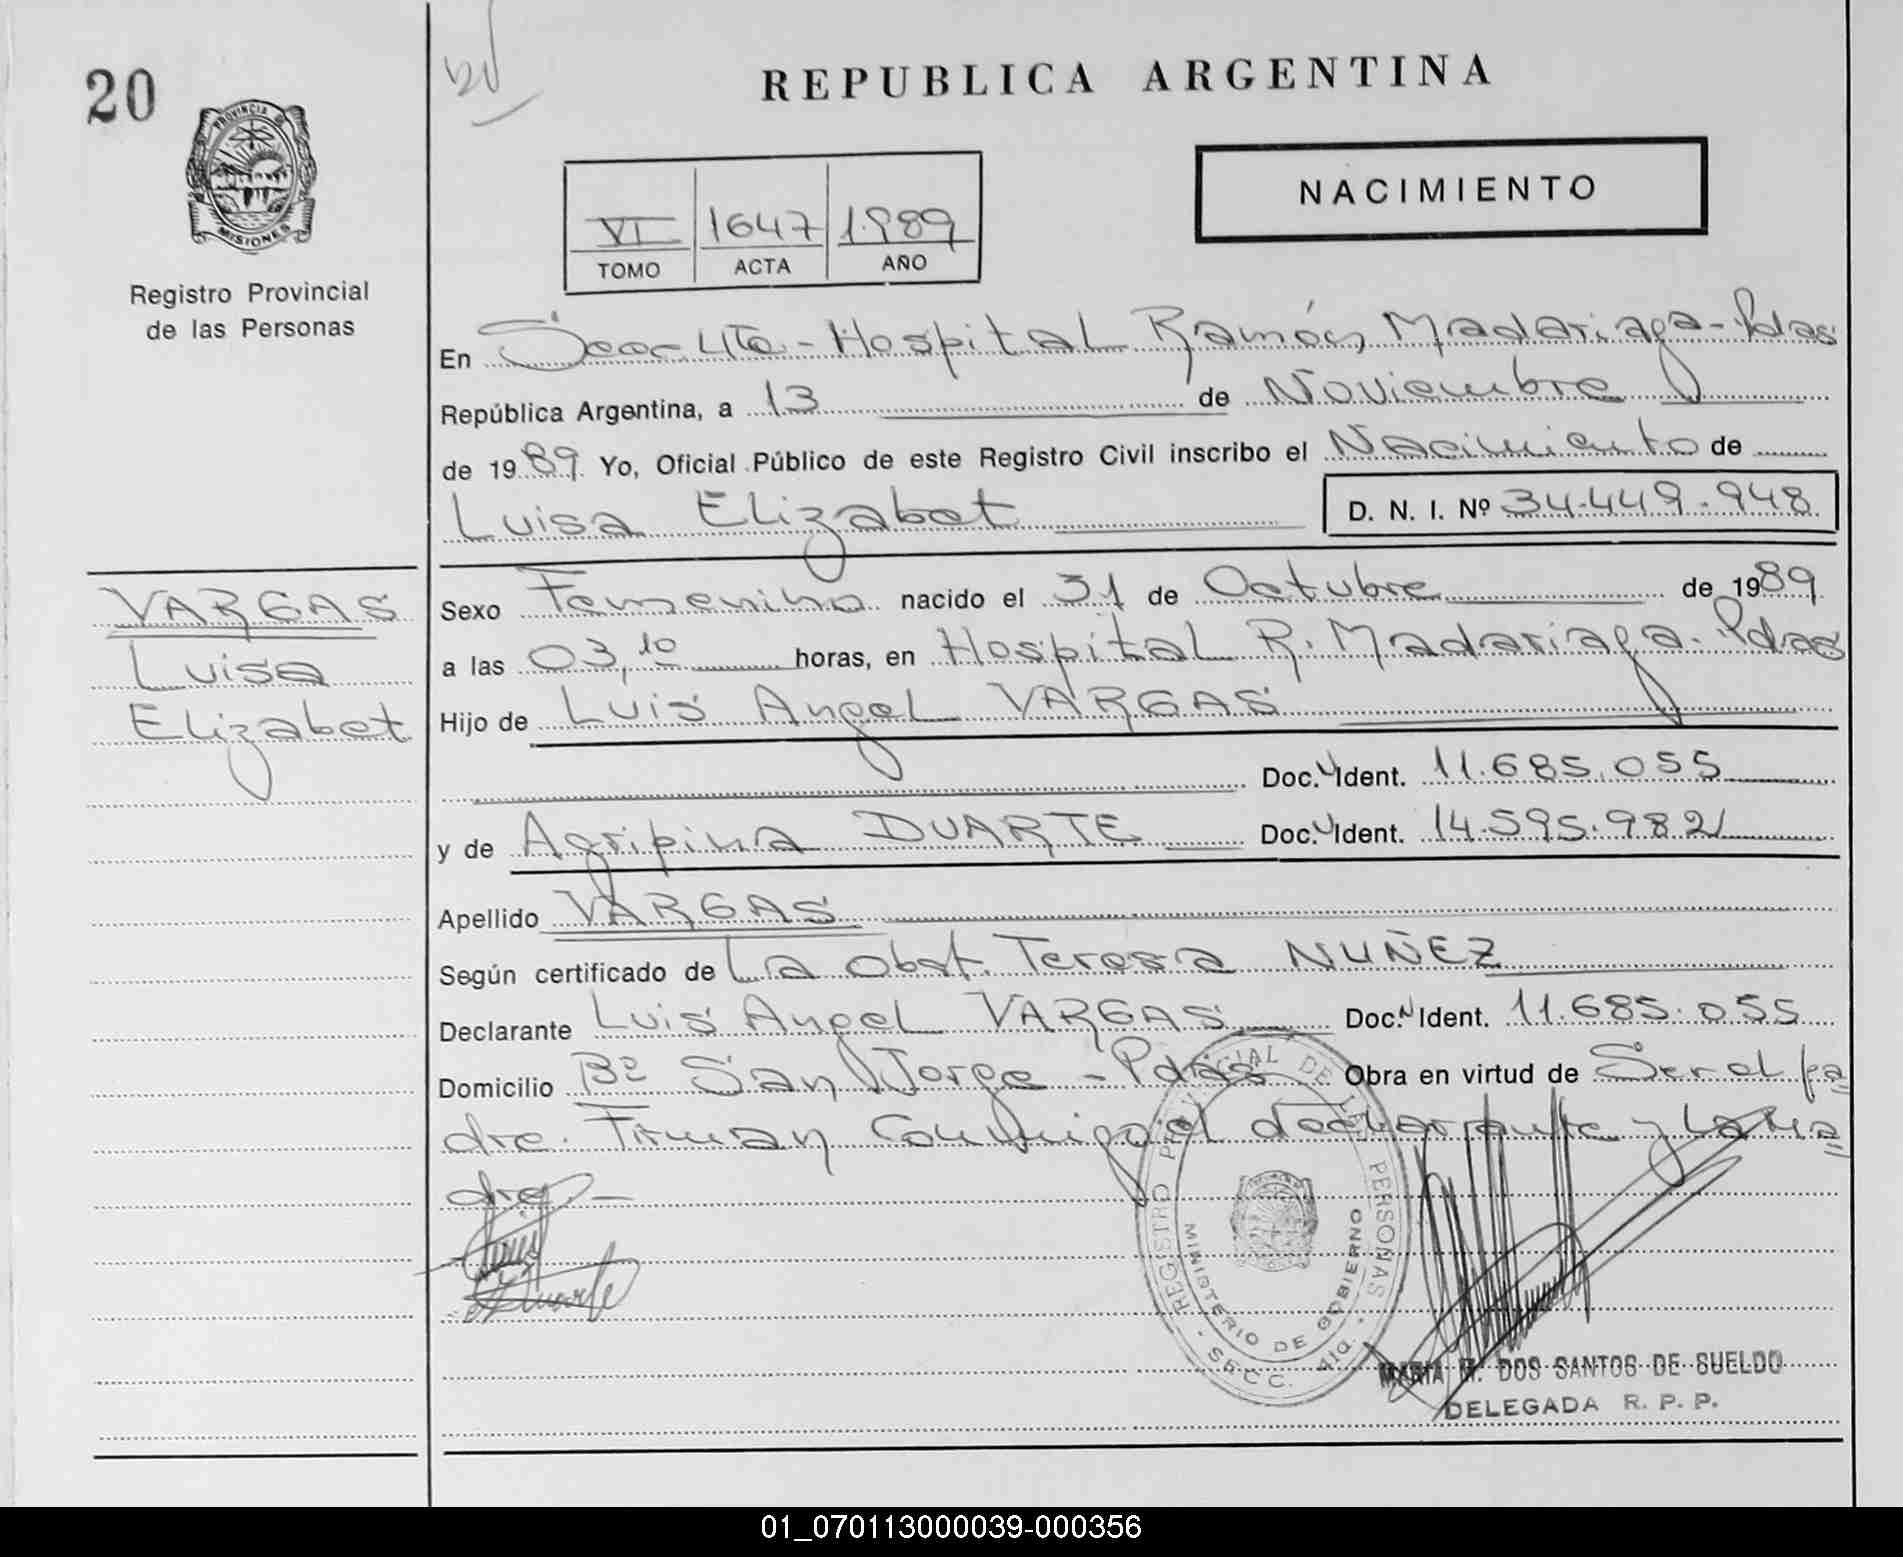 20
20
REPUBLICA ARGENTINA
PROVINCIA DE
MISIONES
Registro Provincial
de las Personas
VI 1647 1.989
TOMO ACTA AÑO
NACIMIENTO
En Secc 4ta - Hospital Ramón Madariaga - Pdas
República Argentina, a 13 de Noviembre
de 1989. Yo, Oficial Público de este Registro Civil inscribo el Nacimiento de
Luisa Elizabet D. N. I. Nº 34.449.948
VARGAS
Luisa
Elizabet
Sexo Femenino nacido el 31 de Octubre de 1989
a las 03,10 horas, en Hospital R. Madariaga. Pdas
Hijo de Luis Angel VARGAS
Doc. N Ident. 11.685.055
y de Agripina DUARTE Doc. N Ident. 14.595.982
Apellido VARGAS
Según certificado de La Obst. Teresa NUÑEZ
Declarante Luis Angel VARGAS Doc. N Ident. 11.685.055
Domicilio Bº San Jorge - Pdas Obra en virtud de Ser el pa
dre. Firman Conmigo el declarante y la ma
dre. -
Duarte
REGISTRO PROVINCIAL DE LAS PERSONAS
MINISTERIO DE GOBIERNO
SECC. 4ta.
MARIA DOS SANTOS DE SUELDO
DELEGADA R. P. P.
01_070113000039-000356